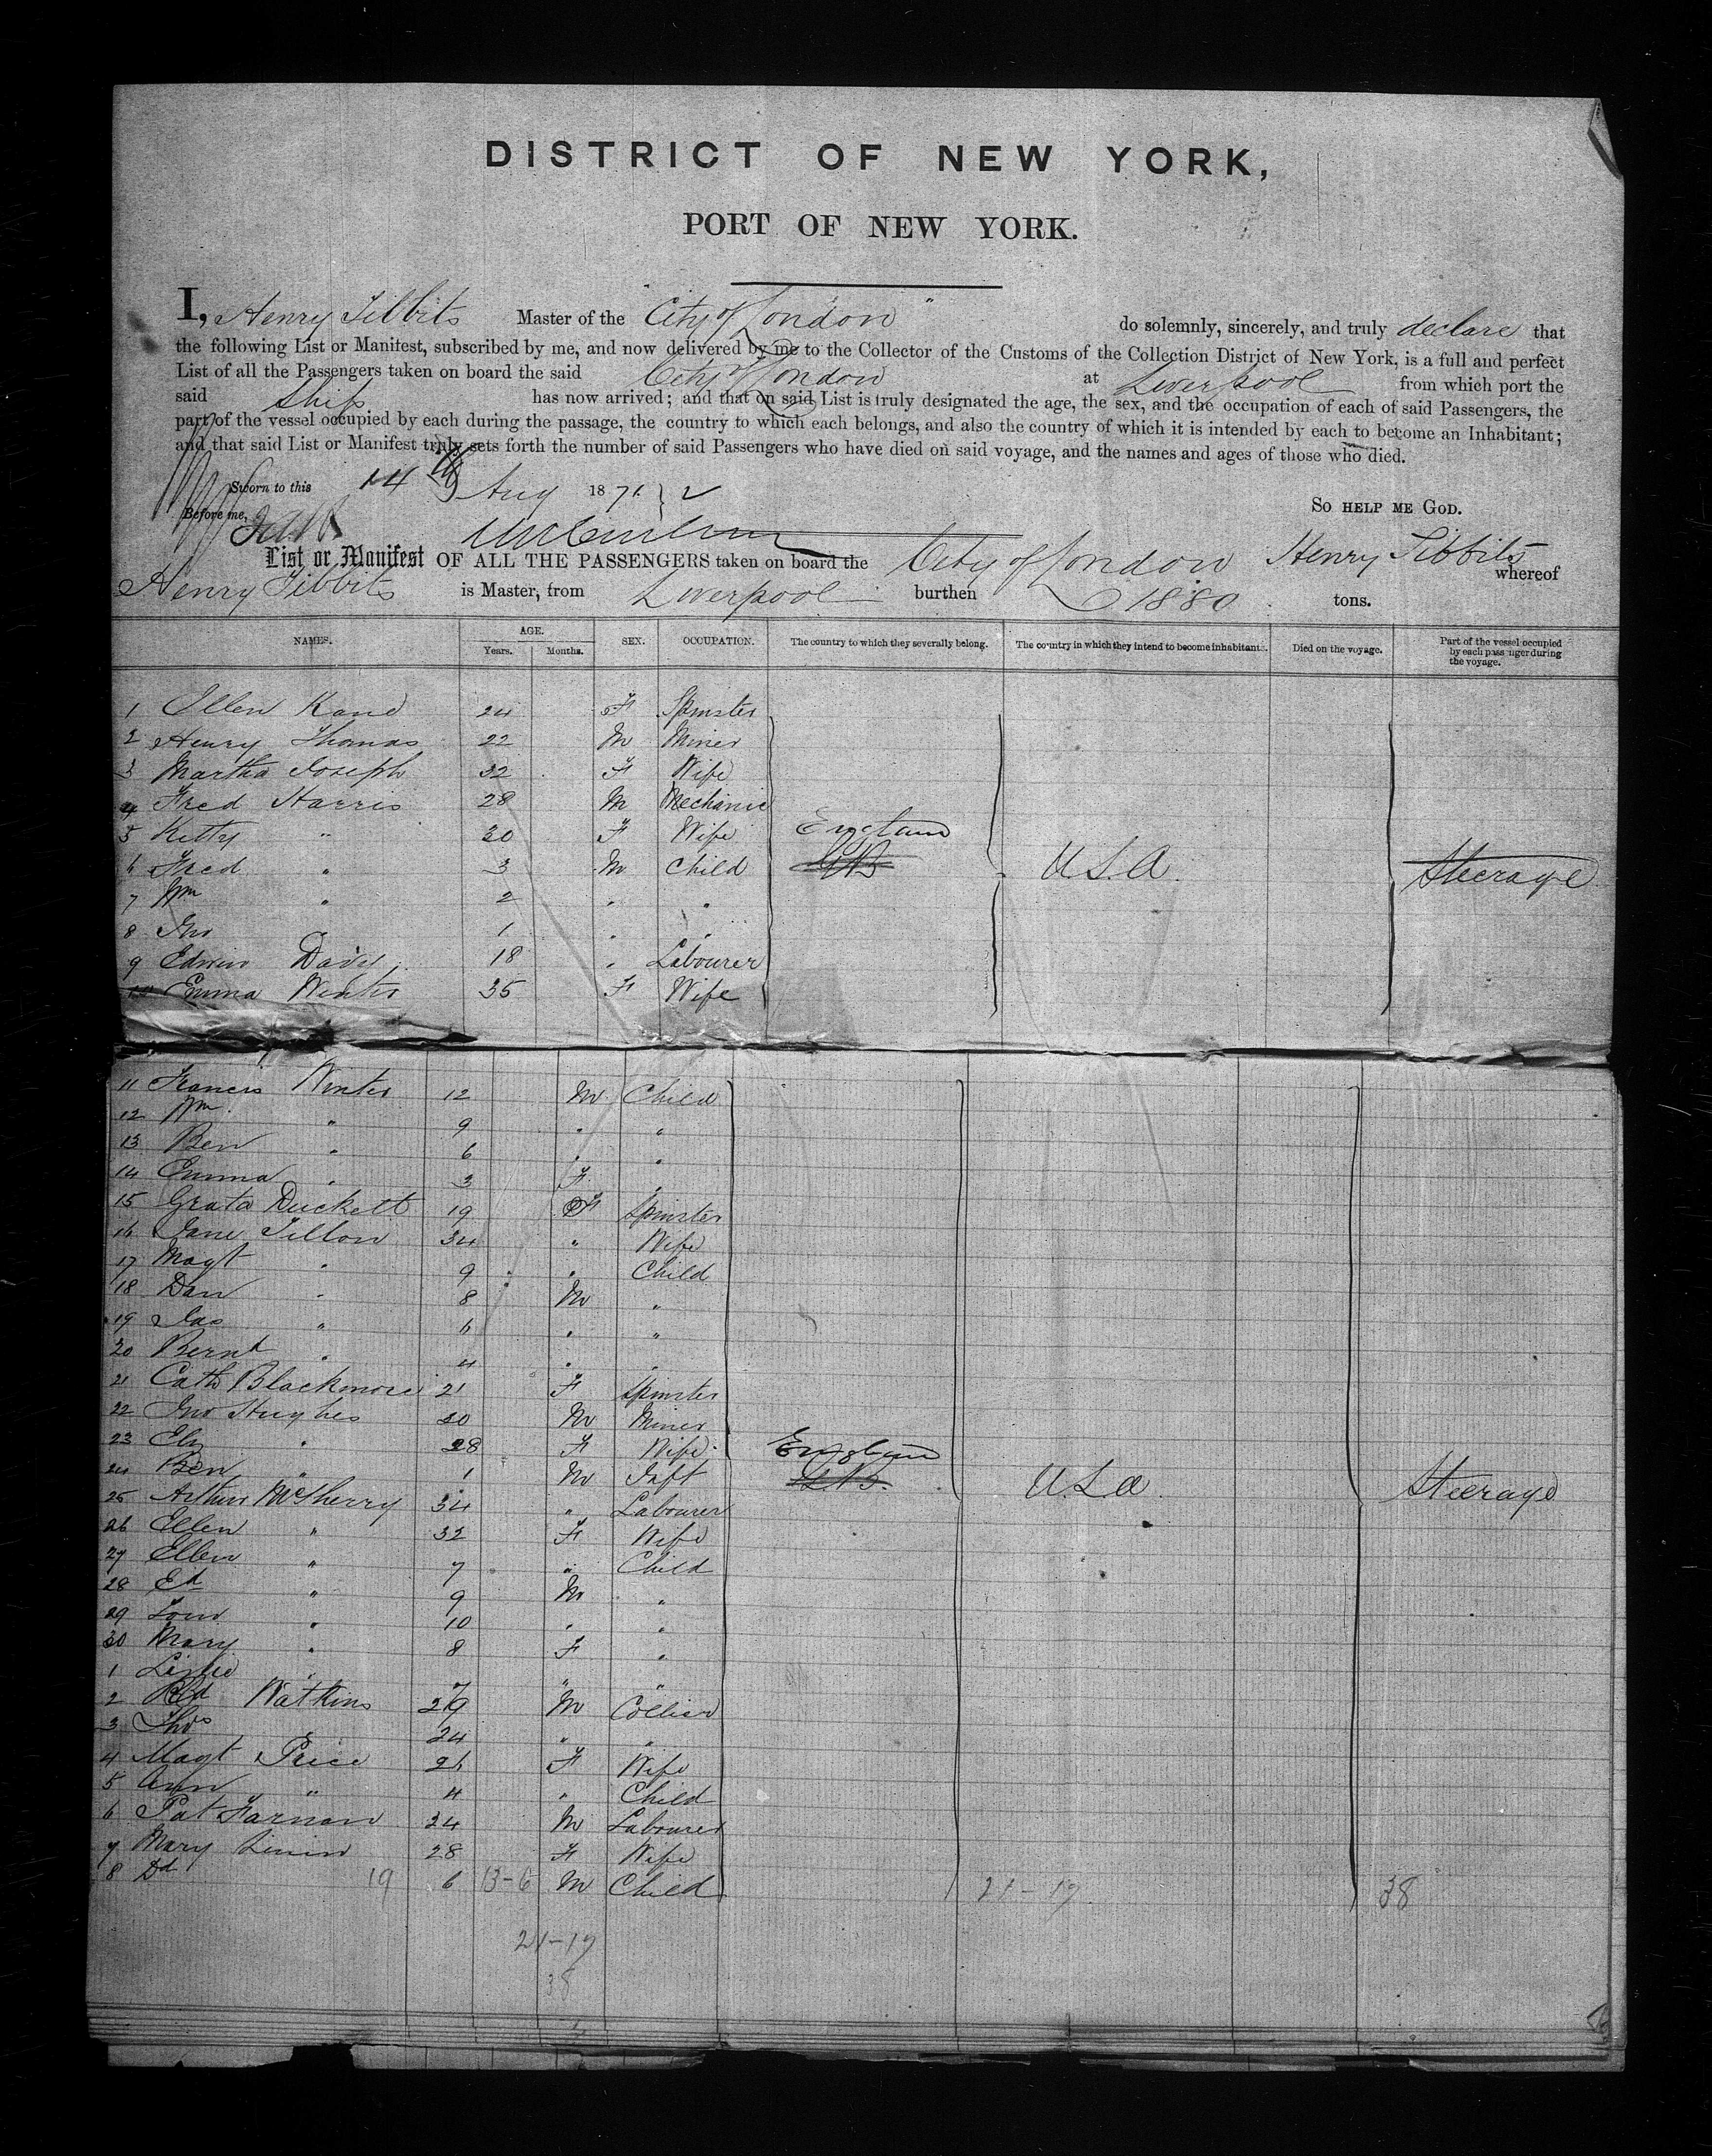 DISTRICT OF NEW YORK,
PORT OF NEW YORK.
I, Henry Tibbits Master of the "City of London" do solemnly, sincerely, and truly declare that
the following List or Manifest, subscribed by me, and now delivered by me to the Collector of the Customs of the Collection District of New York, is a full and perfect
List of all the Passengers taken on board the said City of London at Liverpool from which port the
said Ship has now arrived; and that on said List is truly designated the age, the sex, and the occupation of each of said Passengers, the
part of the vessel occupied by each during the passage, the country to which each belongs, and also the country of which it is intended by each to become an Inhabitant;
and that said List or Manifest truly sets forth the number of said Passengers who have died on said voyage, and the names and ages of those who died.
Sworn to this 14th Aug 1871
So HELP ME GOD.
Before me,
List or Manifest OF ALL THE PASSENGERS taken on board the City of London Henry Tibbits whereof
Henry Tibbits is Master, from Liverpool burthen 1880 tons.
NAMES. AGE. Years. Months. SEX. OCCUPATION. The country to which they severally belong. The country in which they intend to become inhabitants. Died on the voyage. Part of the vessel occupied by each passenger during the voyage.
1 Ellen Kane 24 F Spinster
2 Henry Thomas 22 M Miner
3 Martha Joseph 32 F Wife
4 Fred Harris 28 M Mechanic
5 Kitty " 30 F Wife England
6 Fred " 3 M Child GB U.S.A. Steerage
7 Wm " 2 " "
8 Jno " 1 " "
9 Edwin Davy 18 " Labourer
10 Emma Winter 35 F Wife
11 Francis Winter 12 M Child
12 Wm " 9 " "
13 Ben " 6 " "
14 Emma " 3 F "
15 Grata Duckett 19 F Spinster
16 Jane Tillon 34 " Wife
17 Magt " 9 " Child
18 Dan " 8 M "
19 Jas " 6 " "
20 Bernd " 4 " "
21 Cath Blackmore 21 F Spinster
22 Jno Hughes 30 M Miner
23 Eliz " 28 F Wife England
24 Ben " 1 M Inft GB. U.S.a. Steerage
25 Arthur McSherry 34 " Labourer
26 Ellen " 32 F Wife
27 Ellen " 7 " Child
28 Ed " 9 M "
29 Tom " 10 " "
30 Mary " 8 F "
1 Lizzie " 7 " "
2 Rd Watkins 29 M Collier
3 Thos 24 " "
4 Magt Price 26 F Wife
5 Ann " 4 " Child
6 Pat Farnan 34 M Labourer
7 Mary 28 F Wife
8 Dd 19 6 13-6 M Child 21-17 38
21-17
38